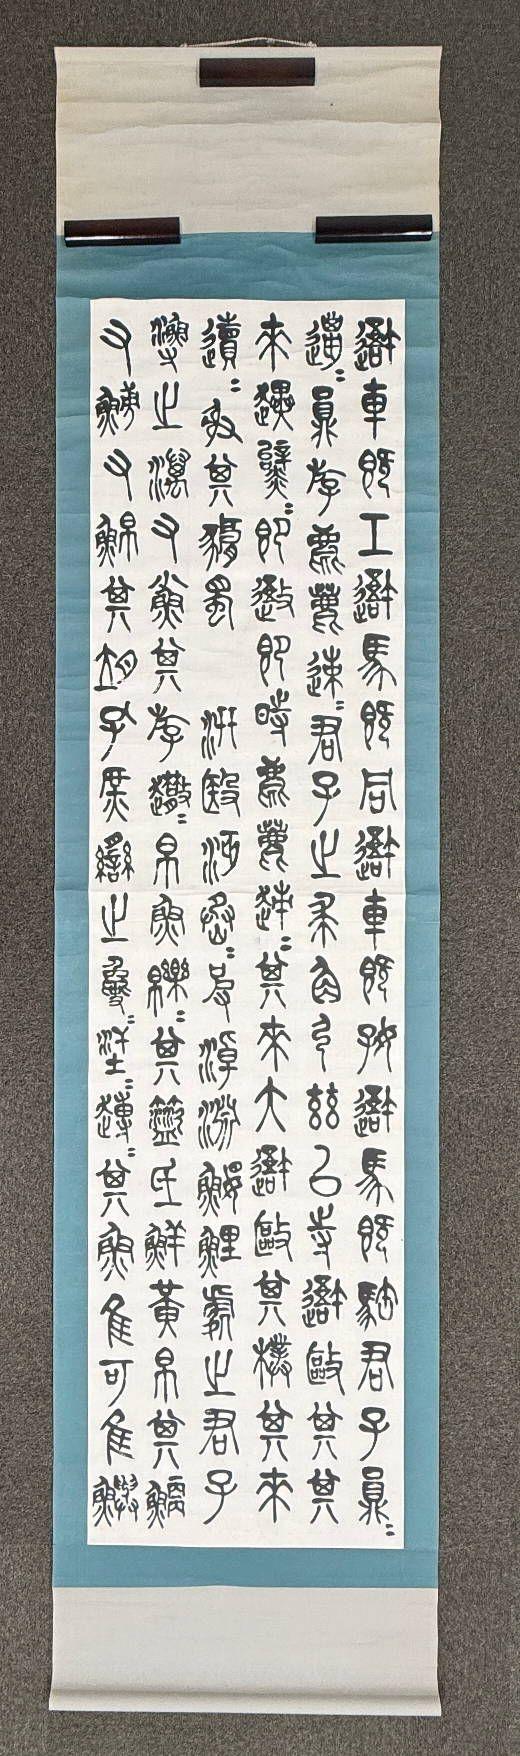 吾車既工吾馬既同吾車既好吾馬既駓君子員=
邋=員斿麀鹿速=君子之求角弓兹以寺吾敺其其
來趩=即即時麀鹿趚=其來大吾敺其樸其來
射其豜蜀 汧殹沔丞=皮淖淵鰋鯉處之君子
漁之澫又魚其斿=帛魚皪=其氐鮮黃帛其鯾
又鱄又鯾其孔庶臠之=趩=其魚隹可隹鱮